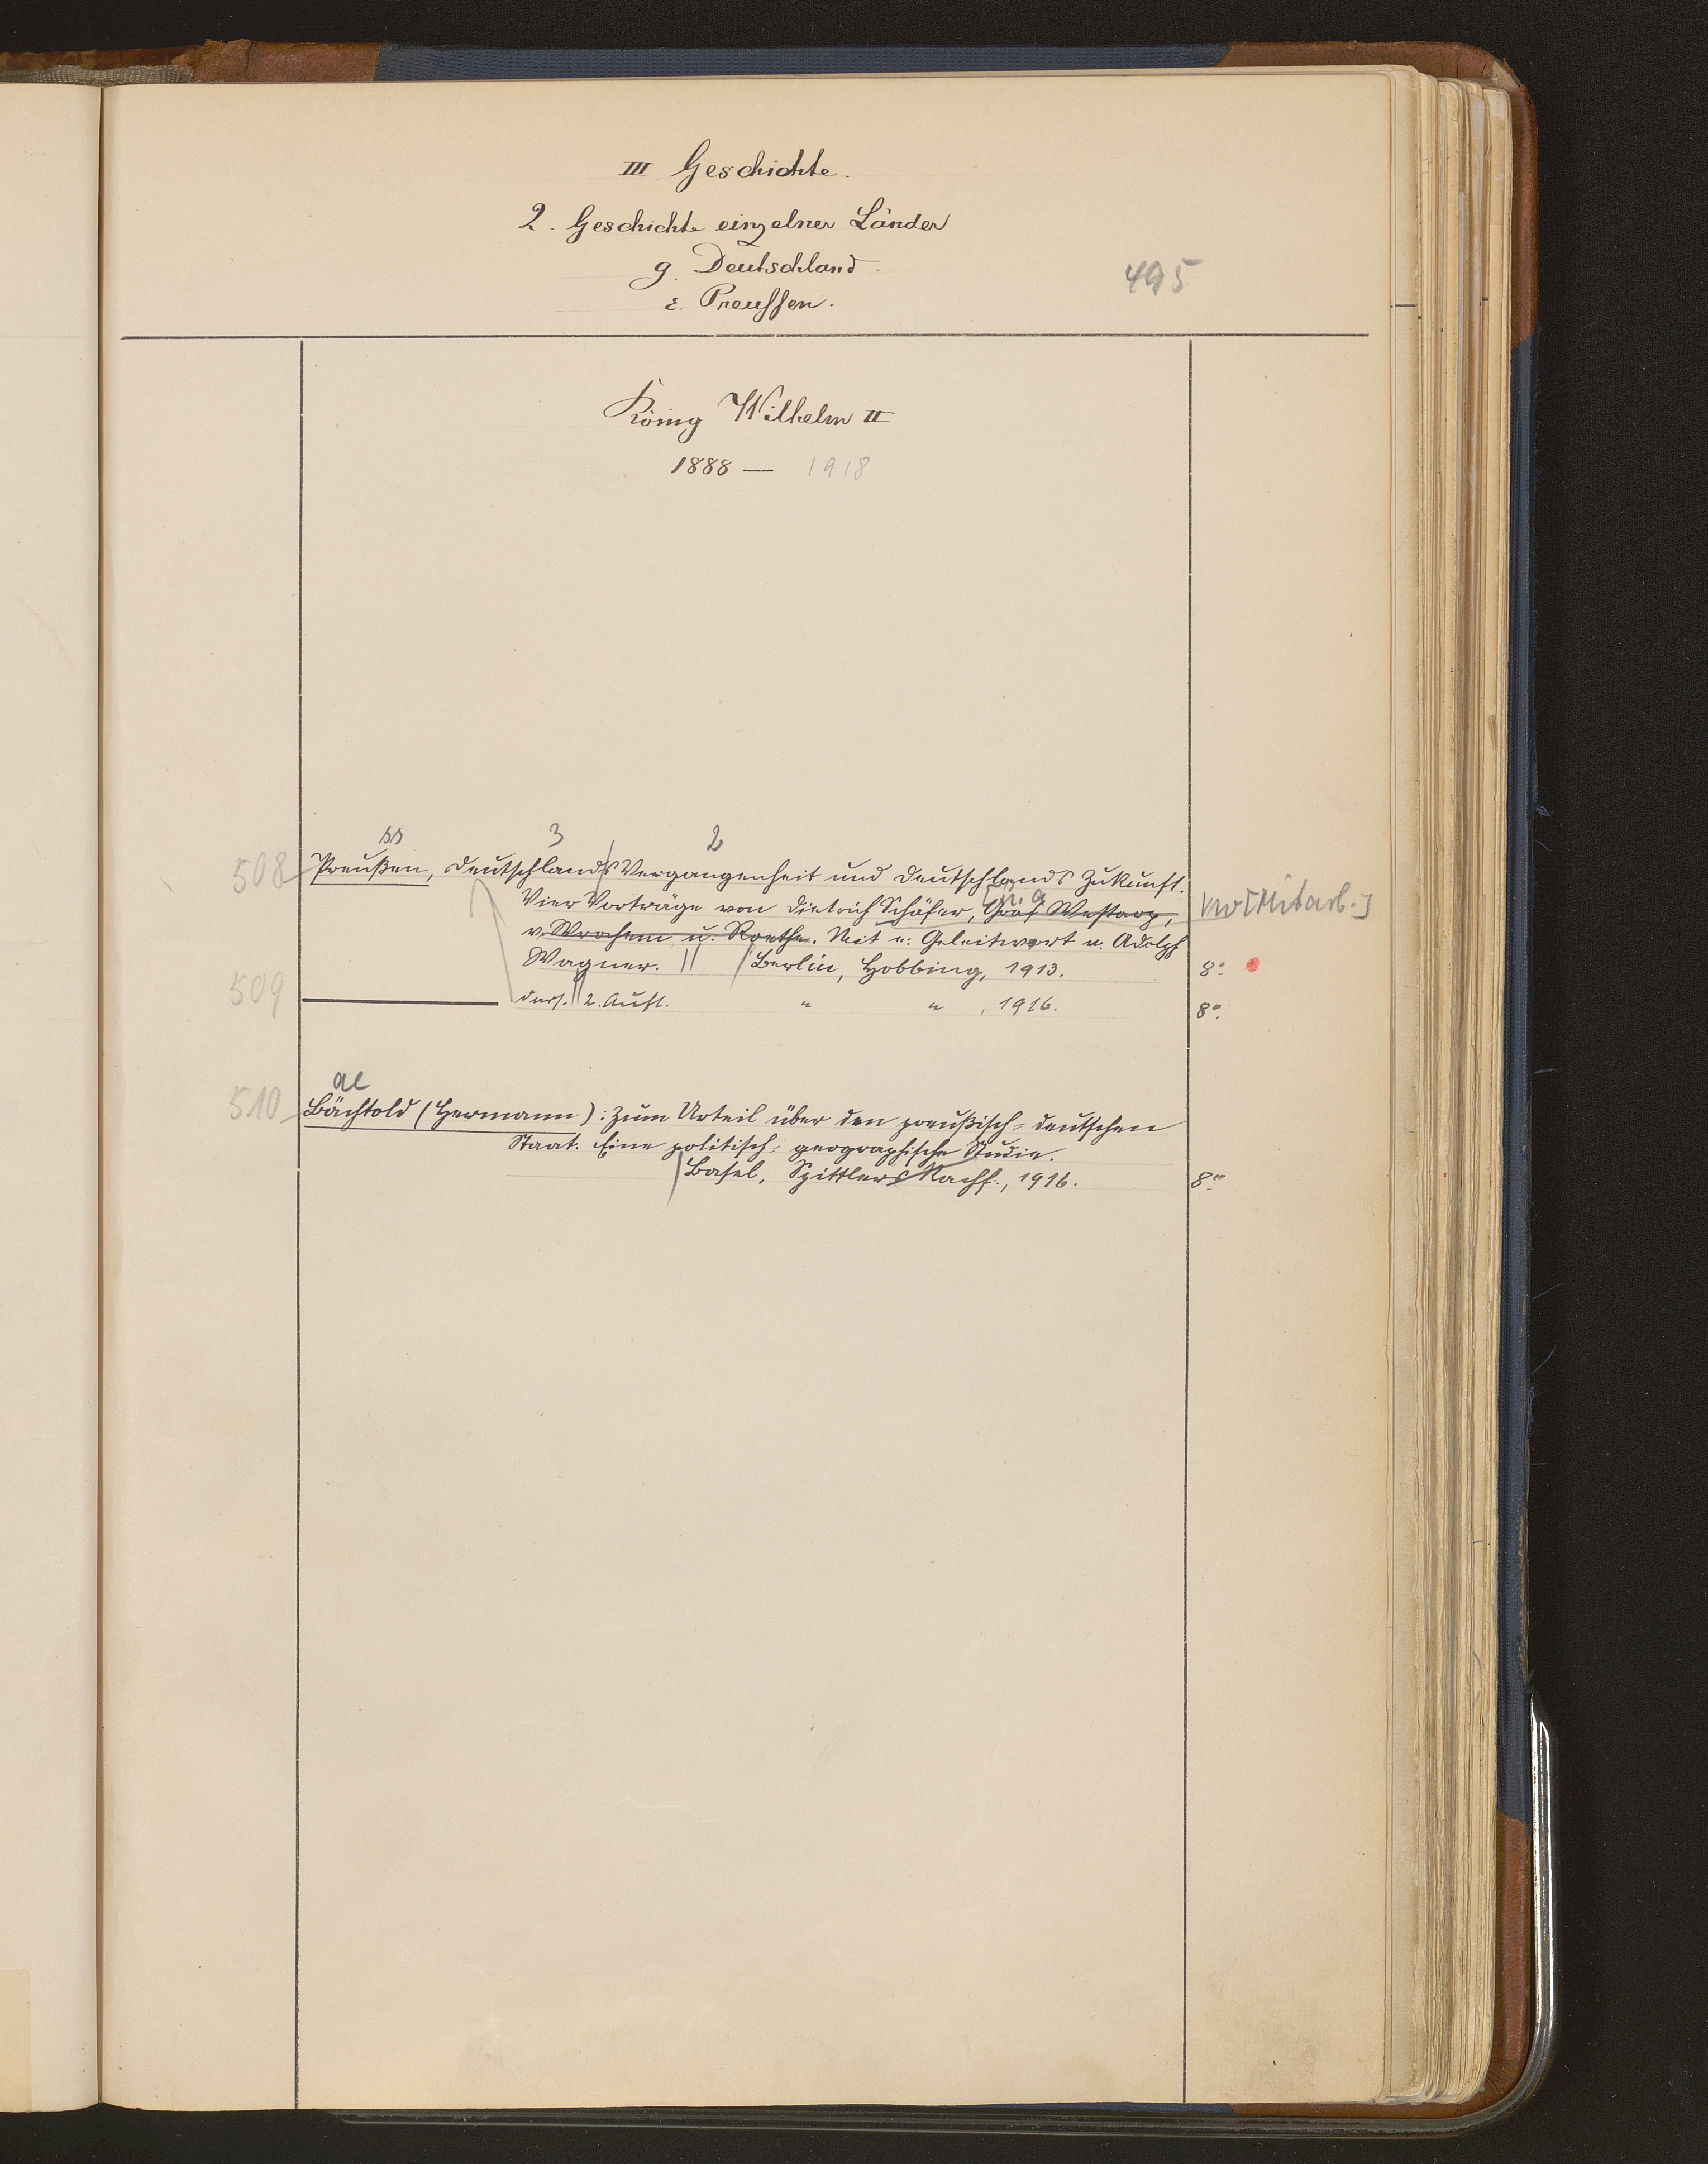 III Geschichte.
2. Geschichte einzelner Länder
g. Deutschland.
495
ε. Preussen.
König Wilhelm II
1888 — 1918
ss 3 2
508 Preußen, Deutschlands Vergangenheit und Deutschlands Zukunft.
u. a.
Vier Vorträge von Dietrich Schäfer, Graf Westarp, [Mitarb.]
v. Wrochem u. Roethe. Mit e. Geleitwort v. Adolph
Wagner. Berlin, Hobbing, 1913. 8°.
509 dass. 2. Aufl. " " , 1916. 8°.
ae
510 Bächtold (Hermann): Zum Urteil über den preußisch-deutschen
Staat. Eine politisch-geographische Studie.
Basel, Spittlers Nachf., 1916. 8°.